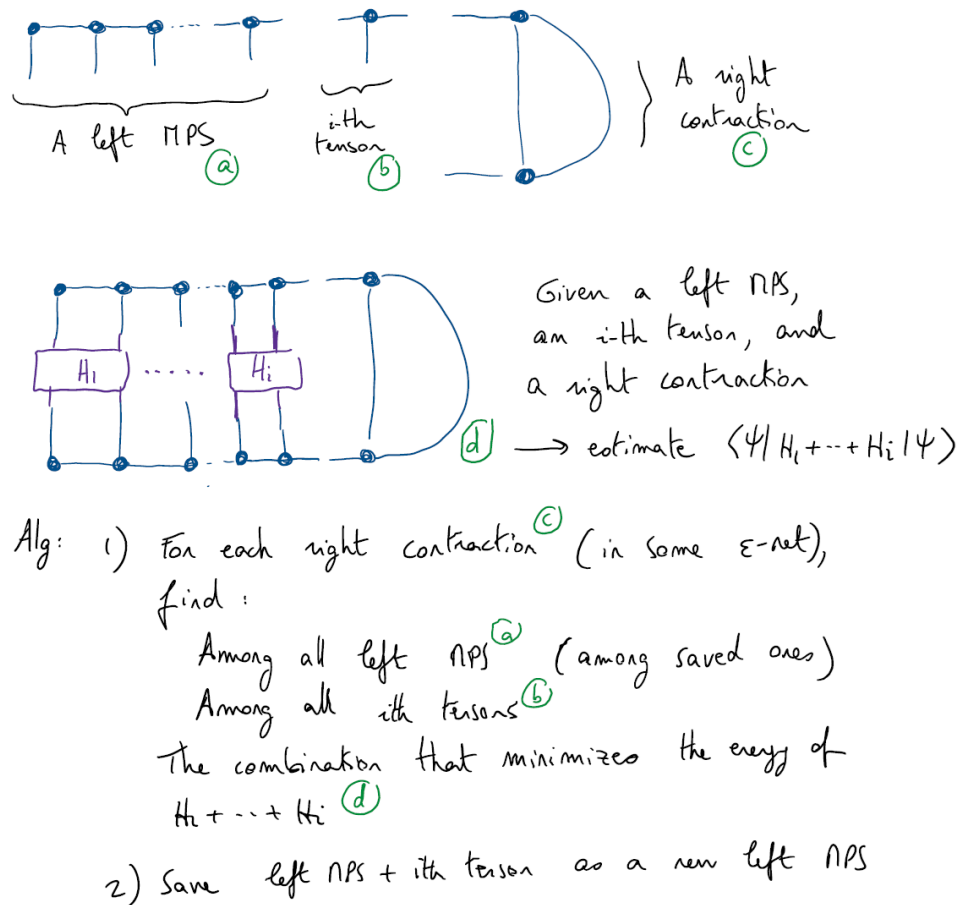 A left MPS
(a)
i-th
tensor
(b)
A right
contraction
(c)
H₁ ..... Hᵢ
(d)
Given a left MPS,
an i-th tensor, and
a right contraction
→ estimate ⟨Ψ| H₁ + ··· + Hᵢ |Ψ⟩
Alg: 1) For each right contraction (c) (in some ε-net),
find :
Among all left MPS (a) (among saved ones)
Among all ith tensors (b)
The combination that minimizes the energy of
H₁ + ··· + Hᵢ (d)
2) Save left MPS + ith tensor as a new left MPS